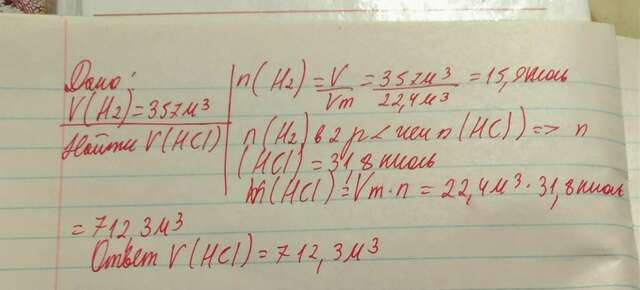 Дано:
V(H₂)=357м³
Найти V(HCl)
n(H₂)=V/Vm=357м³/22,4м³=15,9кмоль
n(H₂) в 2 р < чем n(HCl) => n
(HCl)=31,8кмоль
(HCl)=Vm·n=22,4м³·31,8кмоль
=712,3м³
Ответ V(HCl)=712,3м³